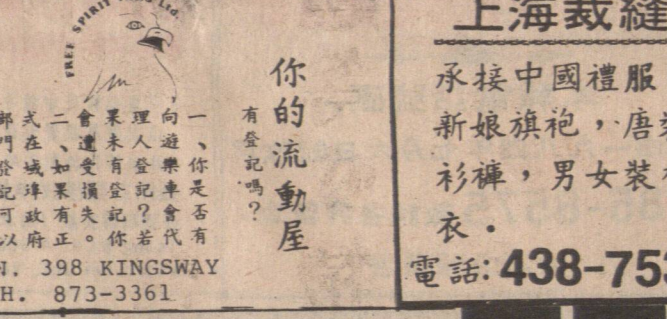 FREE SPIRIT Ltd.
你的流動屋
有登記嗎？
一、你是否有
向遊樂車會代
理人登記？若
果未有登記你
會遭受損失。
二、如果有正
式在域準政府
部門登記可以
398 KINGSWAY
H. 873-3361
上海裁縫
承接中國禮服
新娘旗袍，唐
衫褲，男女裝
衣．
電話：438-753